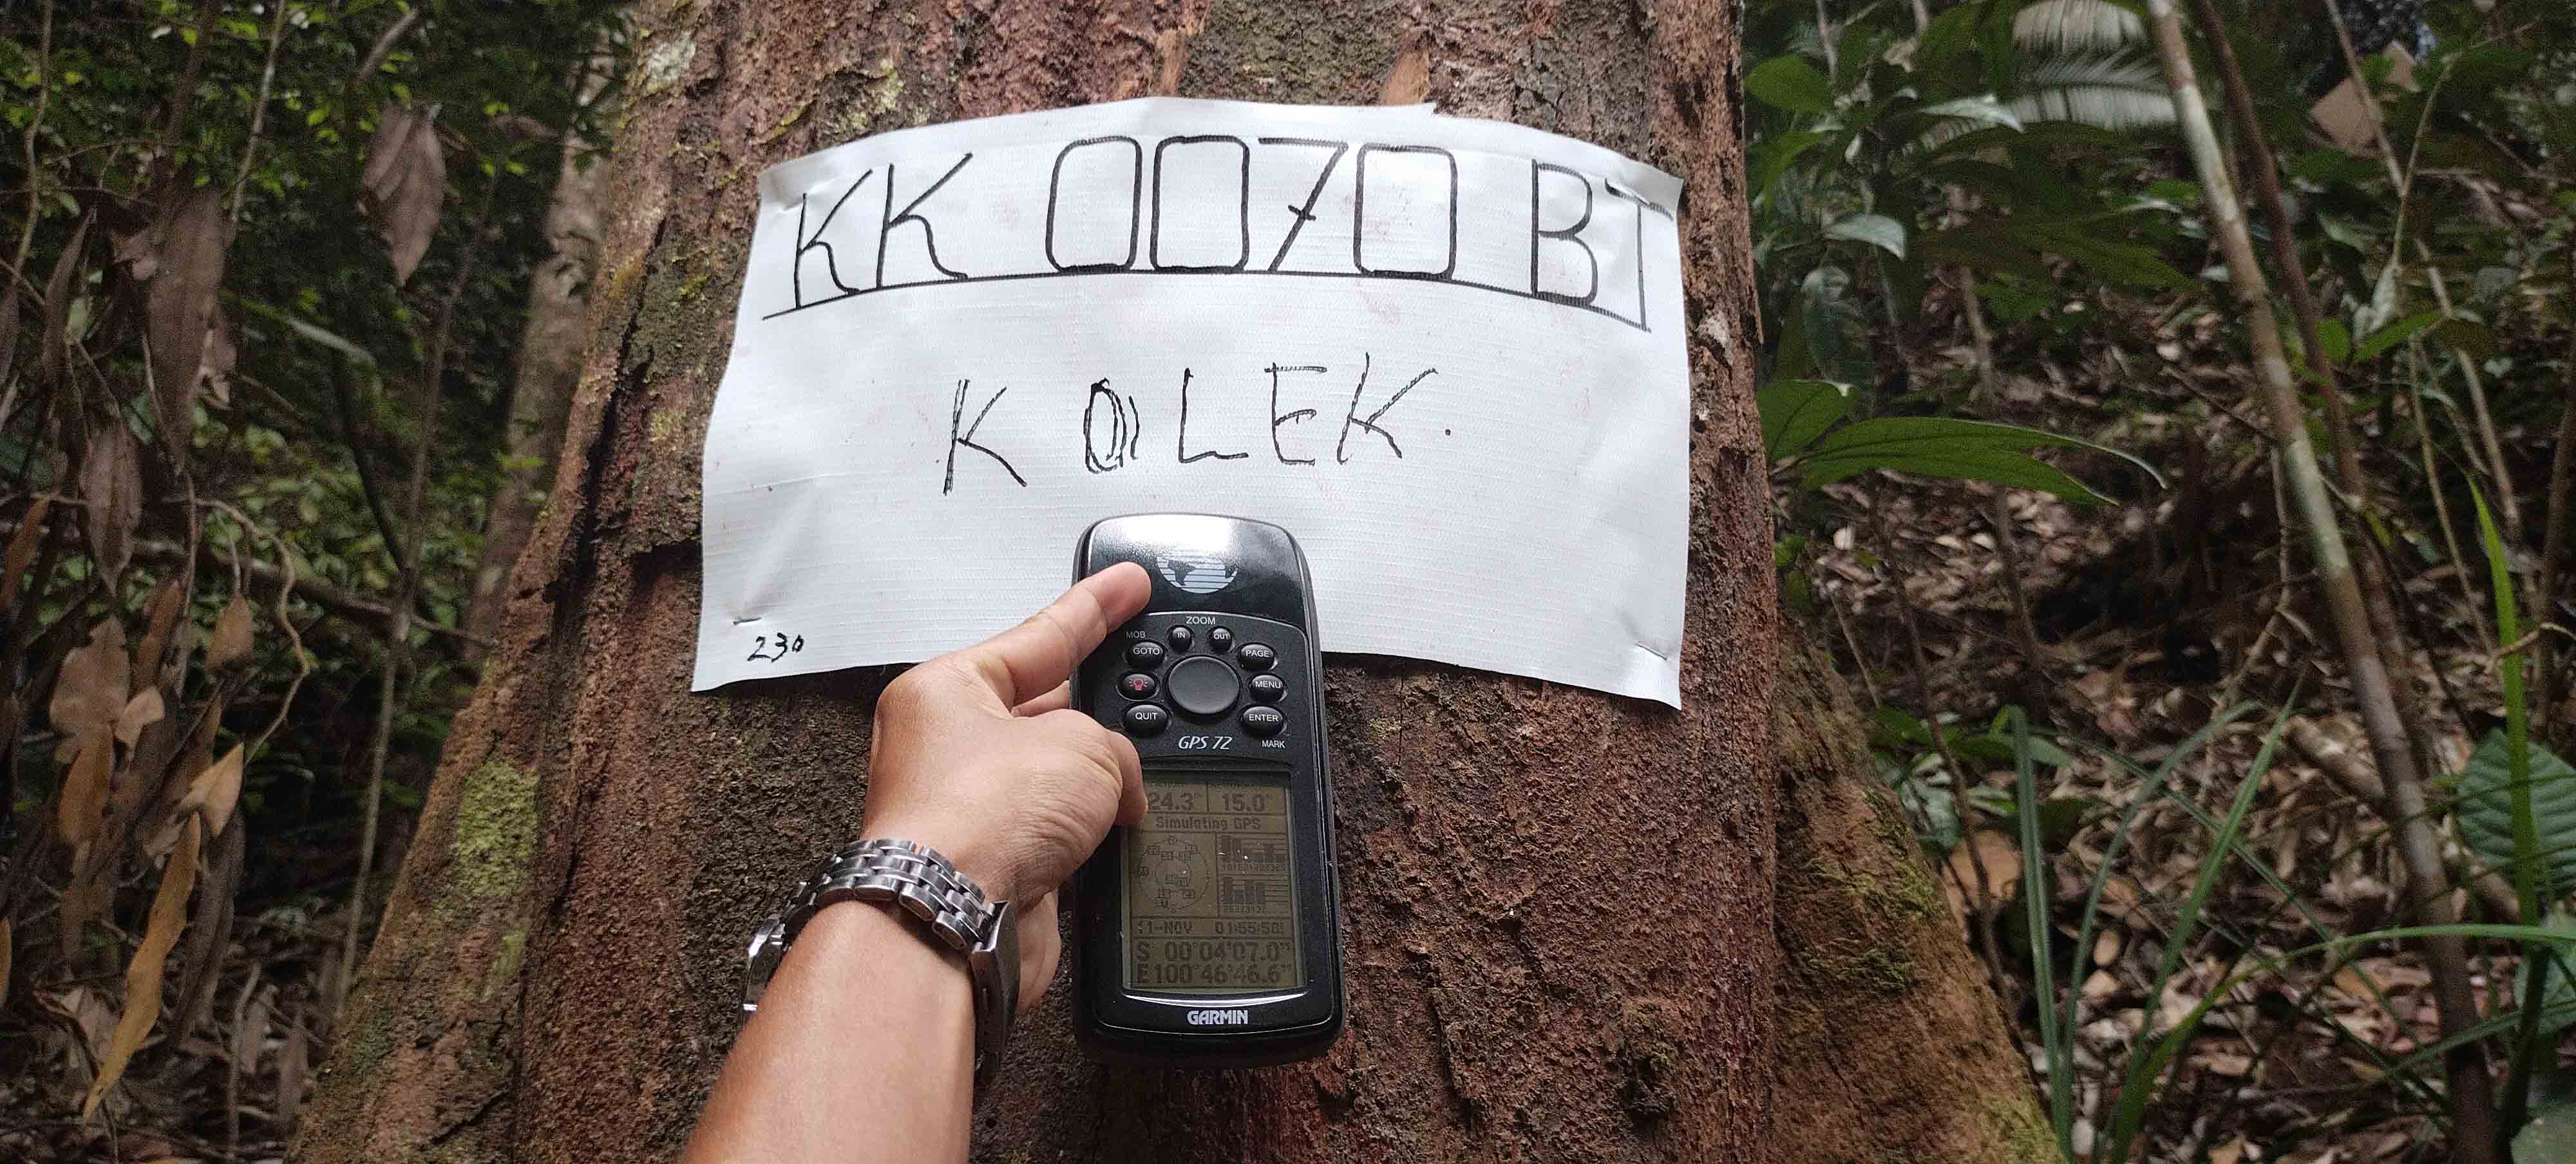 KK 0070 BT
KOLEK.
230
ZOOM
MOB
IN
OUT
GOTO
PAGE
MENU
QUIT
ENTER
GPS 72
MARK
24.3" 15.0"
Simulating GPS
11-NOV 01:55:58
S 00°04'07.0"
E100°46'46.6"
GARMIN